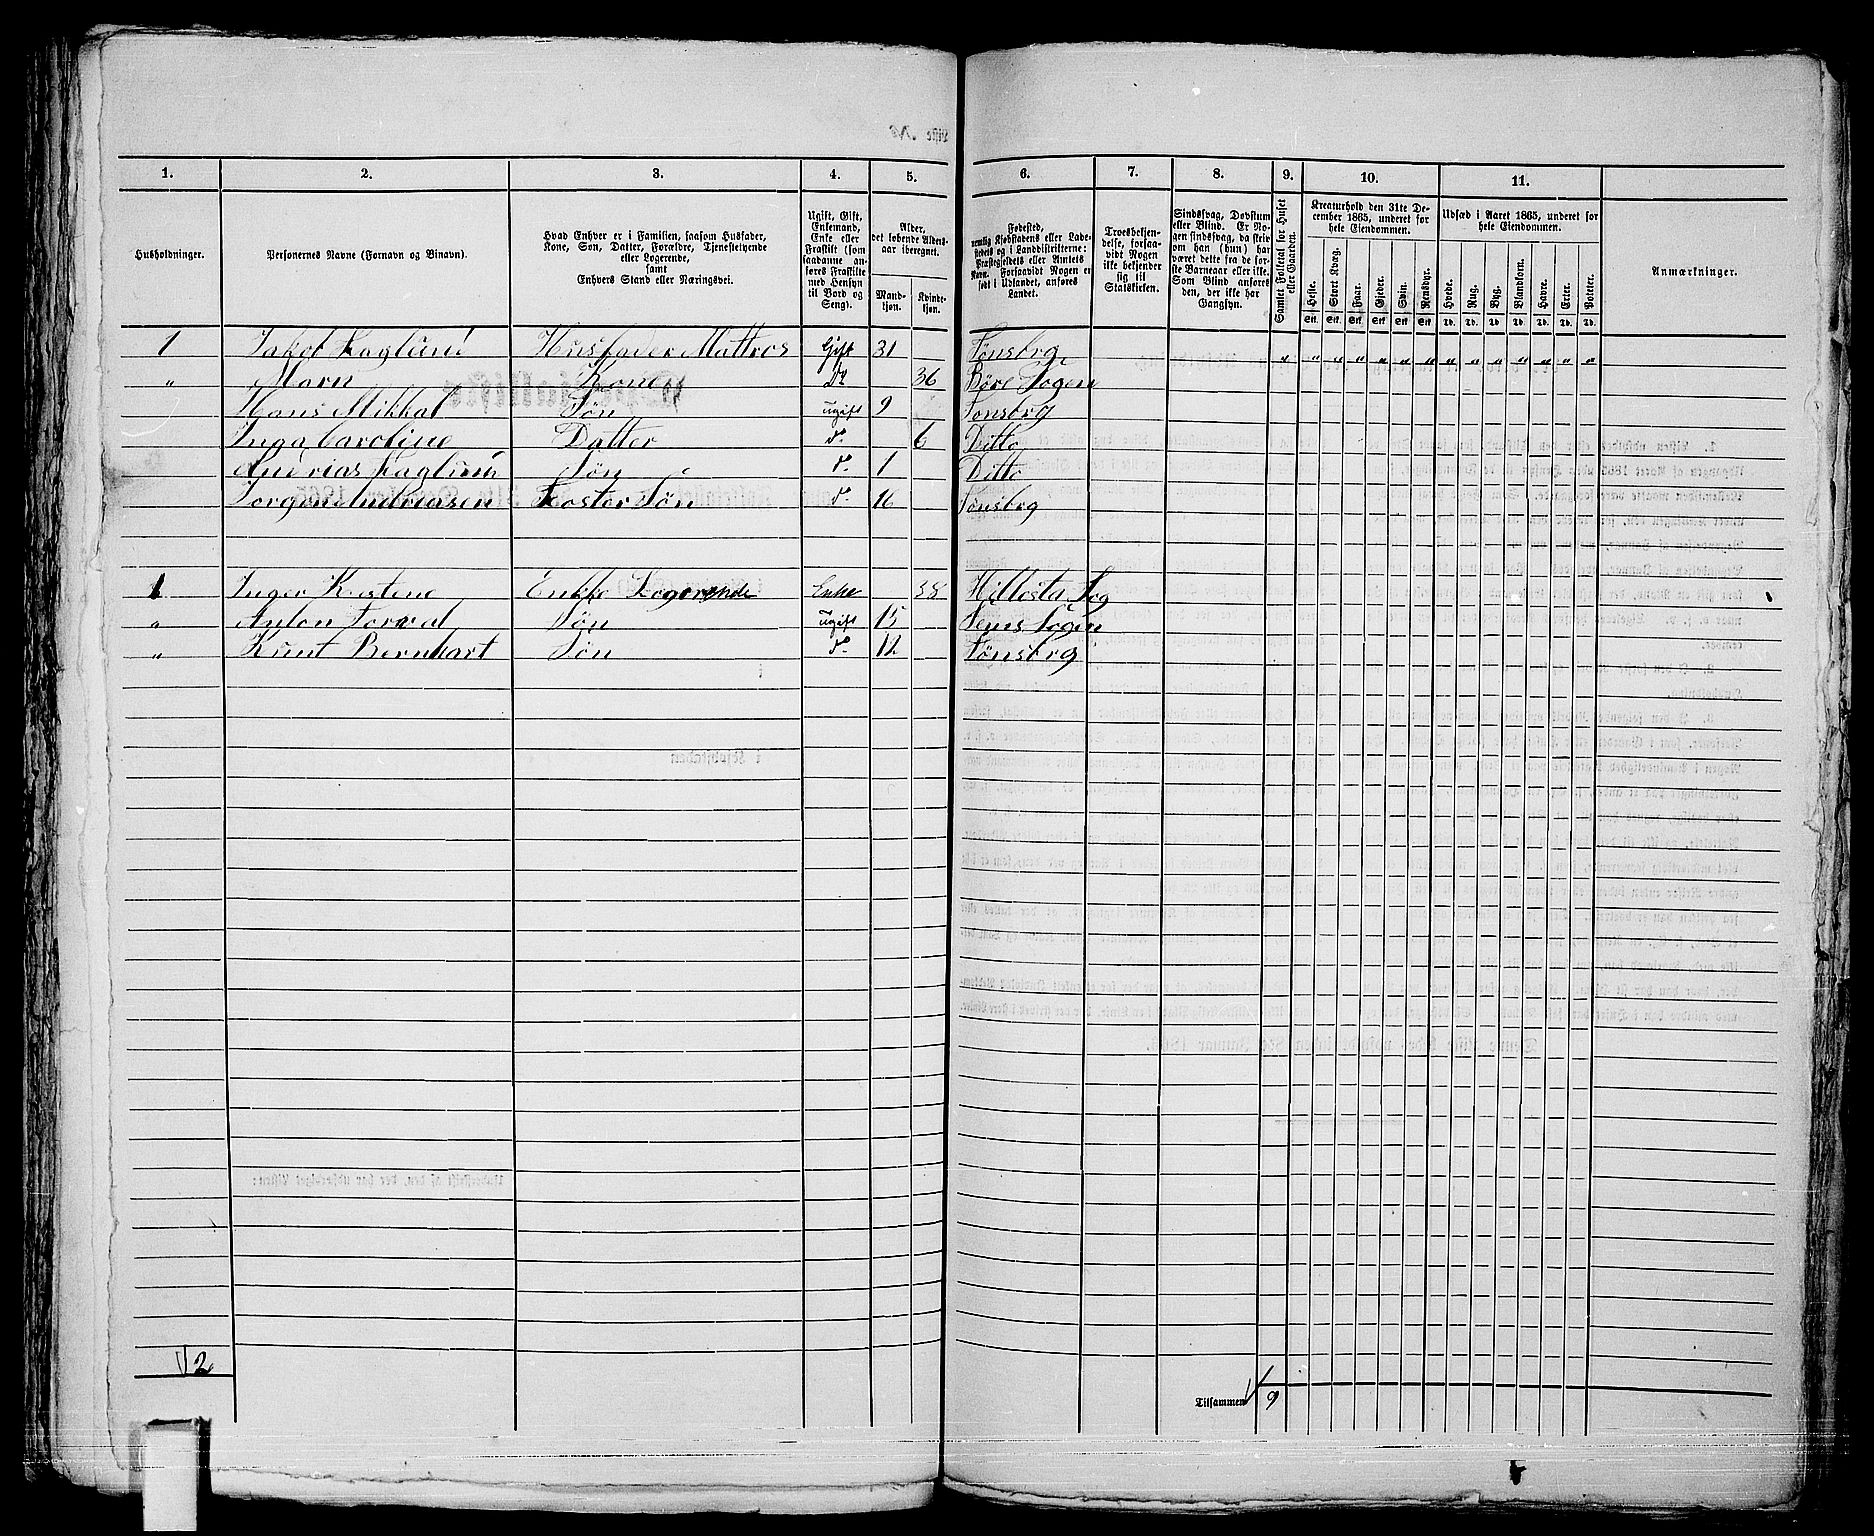 Liste No
1. 2. 3. 4. 5. 6. 7. 8. 9. 10. 11.
Husholdninger.
Personernes Navne (Fornavn og Binavn).
Hvad Enhver er i Familien, saasom Husfader,
Kone, Søn, Datter, Forældre, Tjenestetyende
eller Logerende,
samt
Enhvers Stand eller Næringsvei.
Ugift, Gift,
Enkemand,
Enke eller
Fraskilt (som
saadanne an-
føres Fraskilte
med Hensyn
til Bord og
Seng).
Alder,
det løbende Alders-
aar iberegnet.
Mand-
kjøn.
Kvinde-
kjøn.
Fødested,
nemlig Kjøbstadens eller Lade-
stedets og i Landdistrikterne:
Præstegjeldets eller Amtets
Navn. Forsaavidt Nogen er
født i Udlandet, anføres
Landet.
Troesbekjen-
delse, forsaa-
vidt Nogen
ikke bekjender
sig til
Statskirken.
Sindssvag, Døvstum
eller Blind. Er No-
gen sindssvag, da skriv
om han (hun) har
været dette fra de før-
ste Barneaar eller ikke.
Som Blind anføres
den, der ikke har
Gangsyn.
Samlet Folketal for Huset
eller Gaarden.
Kreaturhold den 31te De-
cember 1865, underet for
hele Eiendommen.
Heste. Stort Kvæg. Faar. Gjeder. Svin. Rensdyr.
Stk. Stk. Stk. Stk. Stk. Stk.
Udsæd i Aaret 1865, underet for
hele Eiendommen.
Hvede. Rug. Byg. Blandkorn. Havre. Erter. Poteter.
Td. Td. Td. Td. Td. Td. Td.
Anmærkninger.
1 Jakob Haglund Husfader Mattros Gift 31 Tønsbrg " " " " " " " " " " " " " "
" Marn Kone Do 36 Sogen
Hans Mikkal Søn ugift 9 Tønsbrg
Inga Caroline Datter do 6 Ditto
Andrias Haglund Søn do 1 Ditto
Jørgen Andriasen Foster Søn do 16 Tønsbrg
1 Inger Kristene Enkke Logerende Enke 38 Sog
" Anton Torval Søn ugift 15 Sems Sogen
" Knut Bernhart Søn do 12 Tønsbrg
2
Tilsammen 9